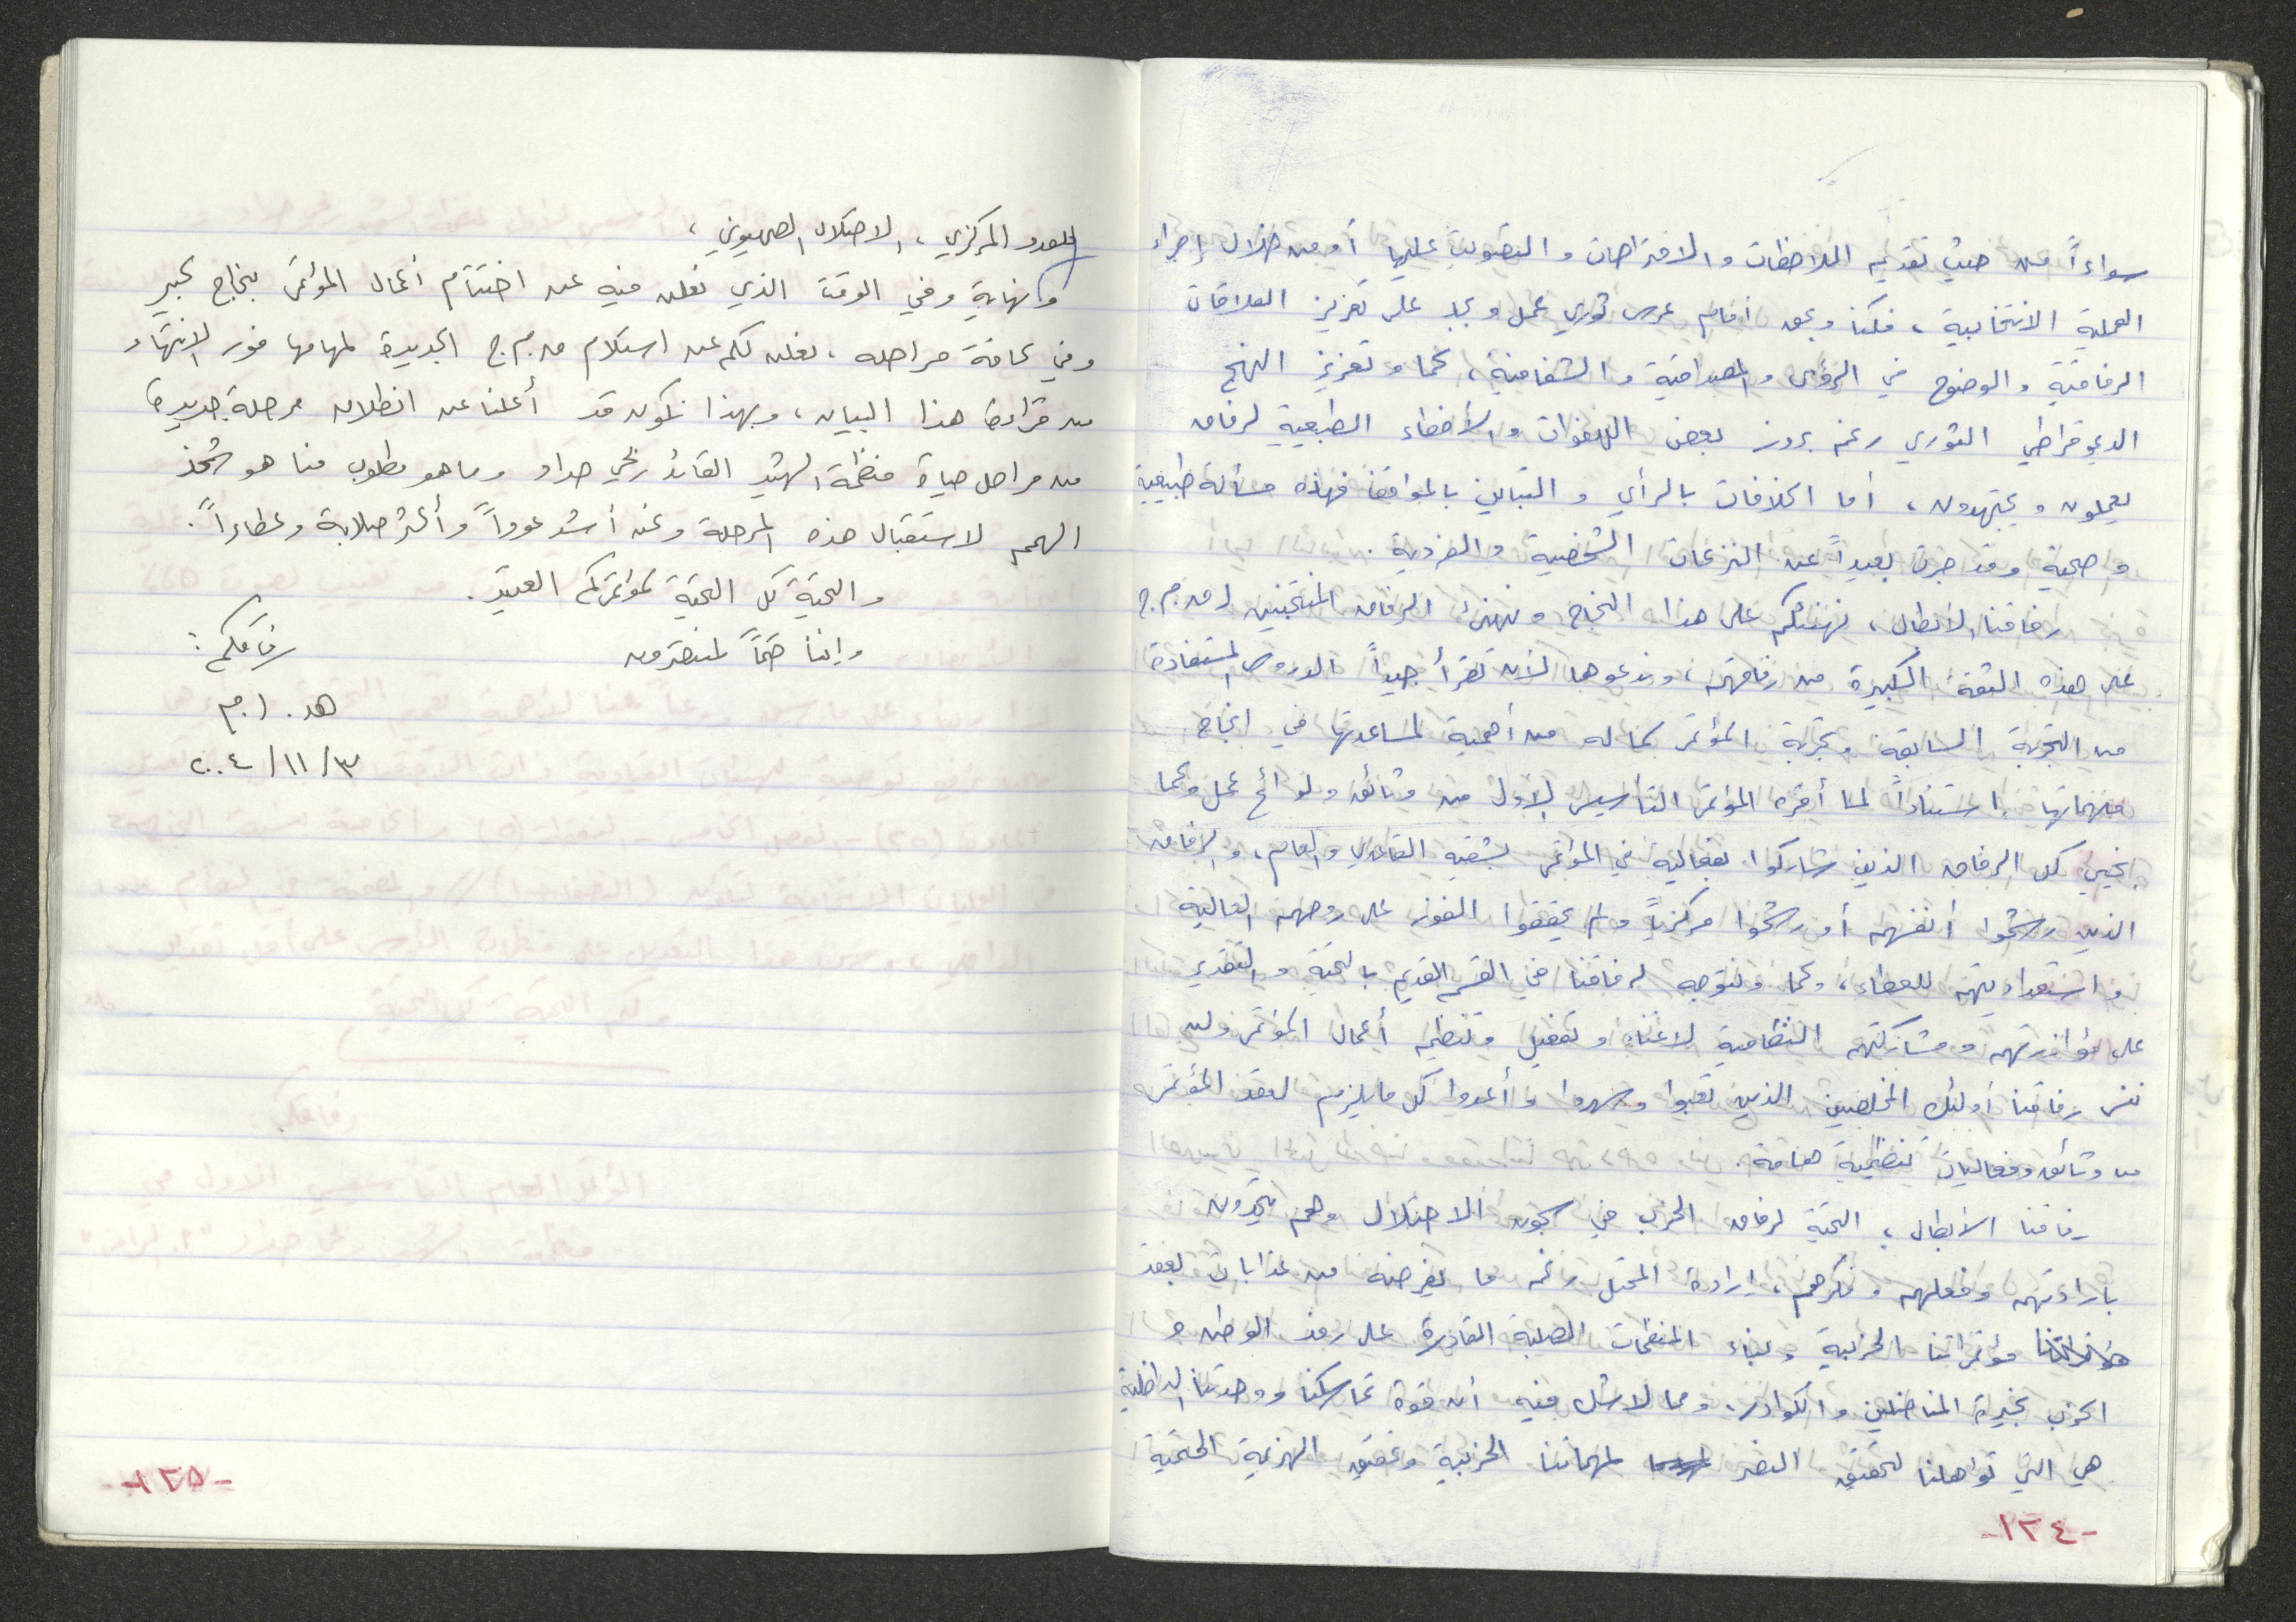 سواءاً من حيث تقديم الملاحظات والاقتراحات والتصويت عليها أو من خلال إجراء
العملية الانتخابية، فكنا وبحق أمام عرس ثوري عمل وبجد على تعزيز العلاقات
الرفاقية والوضوح في الرؤى والمصداقية والشفافية، كما وتعزيز النهج
الديموقراطي الثوري رغم بروز بعض الهفوات والأخطاء الطبيعية لرفاق
يعملون ويجتهدون، أما الخلافات بالرأي والتباين بالمواقف فهذه مسألة طبيعية
وصحية وقد جرت بعيداً عن النزعات الشخصية والفردية.
رفاقنا الأبطال، نهنئكم على هذا النجاح ونهنئ الرفاق المنتخبين لـ م.ج
على هذه الثقة الكبيرة من رفاقهم، وندعوها لأن تقرأ جيداً الدروس المستفادة
من التجربة السابقة وتجربة المؤتمر لما له من أهمية لمساعدتها في انجاح
مهماتها استناداً لما أقره المؤتمر التأسيسي الأول من وثائق ولوائح عمل وكما
نحيي كل الرفاق الذين شاركوا بفعالية في المؤتمر بشقيه القاعدي والعام، والرفاق
الذين رشحوا أنفسهم أو رشحوا مركزياً ولم يحققوا الفوز على روحهم العالية
واستعداديتهم للعطاء، وكما ونتوجه لرفاقنا في القسم القديم بالتحية والتقدير
على مؤازرتهم ومشاركتهم النظامية لاغناء وتفعيل وتنظيم أعمال المؤتمر ولن
ننسى رفاقنا أولئك المخلصين الذين تعبوا وسهروا وأعدوا كل ما يلزم لعقد المؤتمر
من وثائق وفعاليات تنظيمية هامة.
رفاقنا الأبطال، التحية لرفاق الحزب في سجون الاحتلال وهم يتحدون
بارادتهم وفعلهم وفكرهم، ارادة المحتل رغم ما يفرضه من عذابات بعقد
مؤتمراتنا الحزبية وبناء المنظمات الصلبة القادرة على رفد الوطن و
الحزب بخيرة المناضلين والكوادر، ومما لا شك فيه أن قوة تماسكنا ووحدتنا الداخلية
هي التي تؤهلنا لتحقيق النصر لمهماتنا الحزبية وتحقيق الهزيمة الحتمية
-١٢٤-
للعدو المركزي، الاحتلال الصهيوني،
ونهاية وفي الوقت الذي نعلن فيه عن اختتام أعمال المؤتمر بنجاح كبير
وفي كافة مراحله، نعلن لكم عن استلام م.ج الجديدة لمهامها فور الانتهاء
من قراءة هذا البيان، وبهذا نكون قد أعلنا عن انطلاق مرحلة جديدة
من مراحل حياة منظمة الشهيد القائد ربحي حداد وما هو مطلوب منا هو شحذ
الهمم لاستقبال هذه المرحلة ونحن أشد عوداً وأكثر صلابة وعطاءاً.
والتحية كل التحية لمؤتمركم العتيد.
وإننا حتماً لمنتصرون
رفاقكم:
هـ. ا.م
٣/١١/٢٠٠٤
-١٢٥-